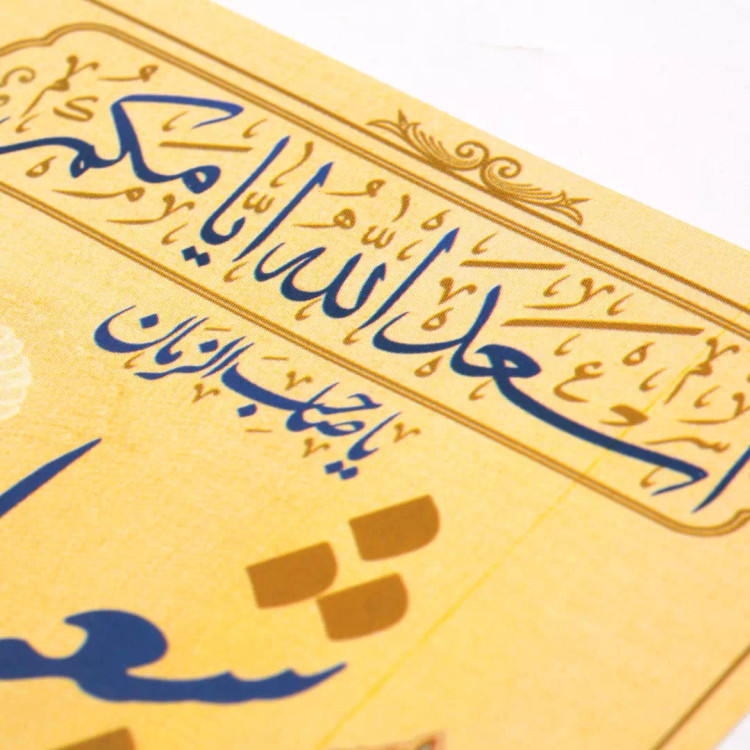 اسعَدَ اللهُ ایّامکم
یا صاحِبَ الزمان